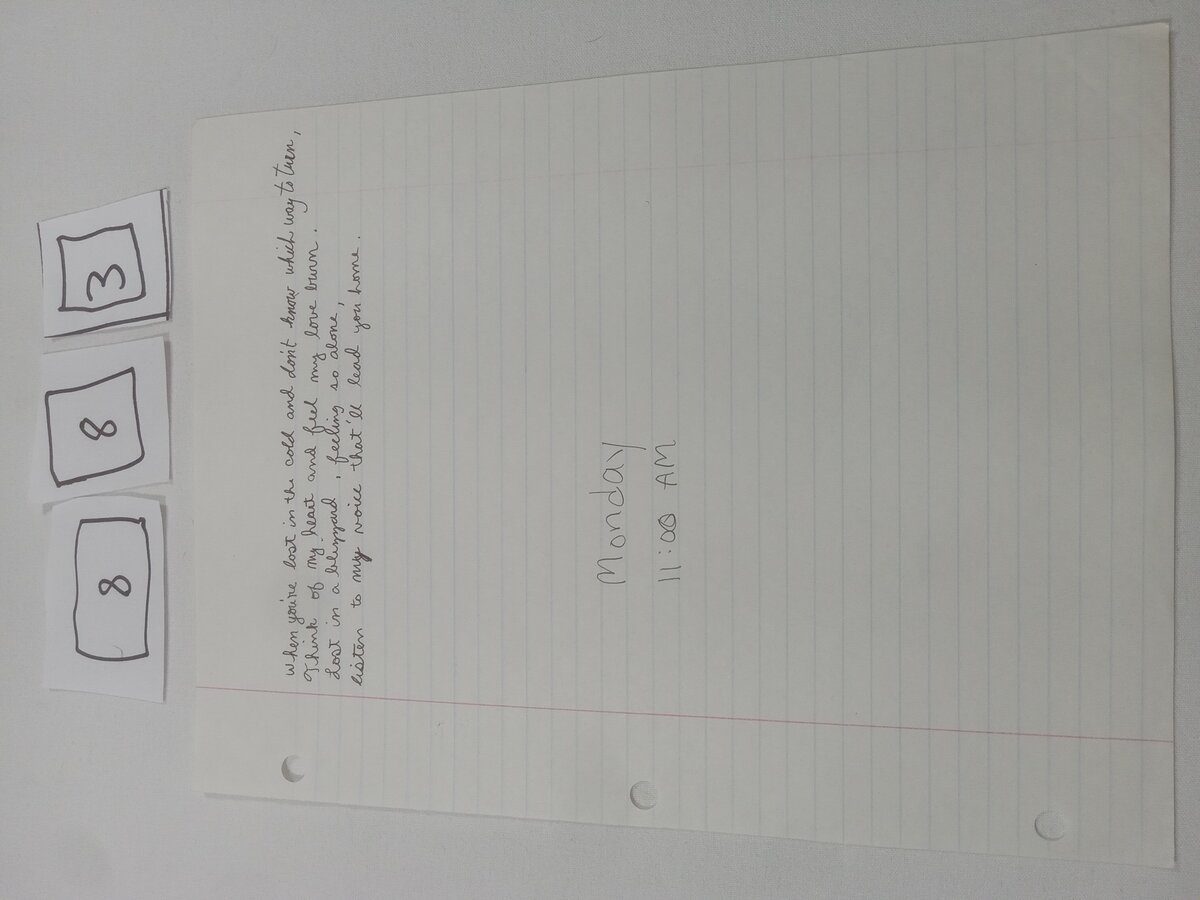 8 8 3
When you're lost in the cold and don't know which way to turn,
Think of my heart and feel my love burn.
Lost in a blizzard, feeling so alone,
listen to my voice that'll lead you home.
Monday
11:00 AM